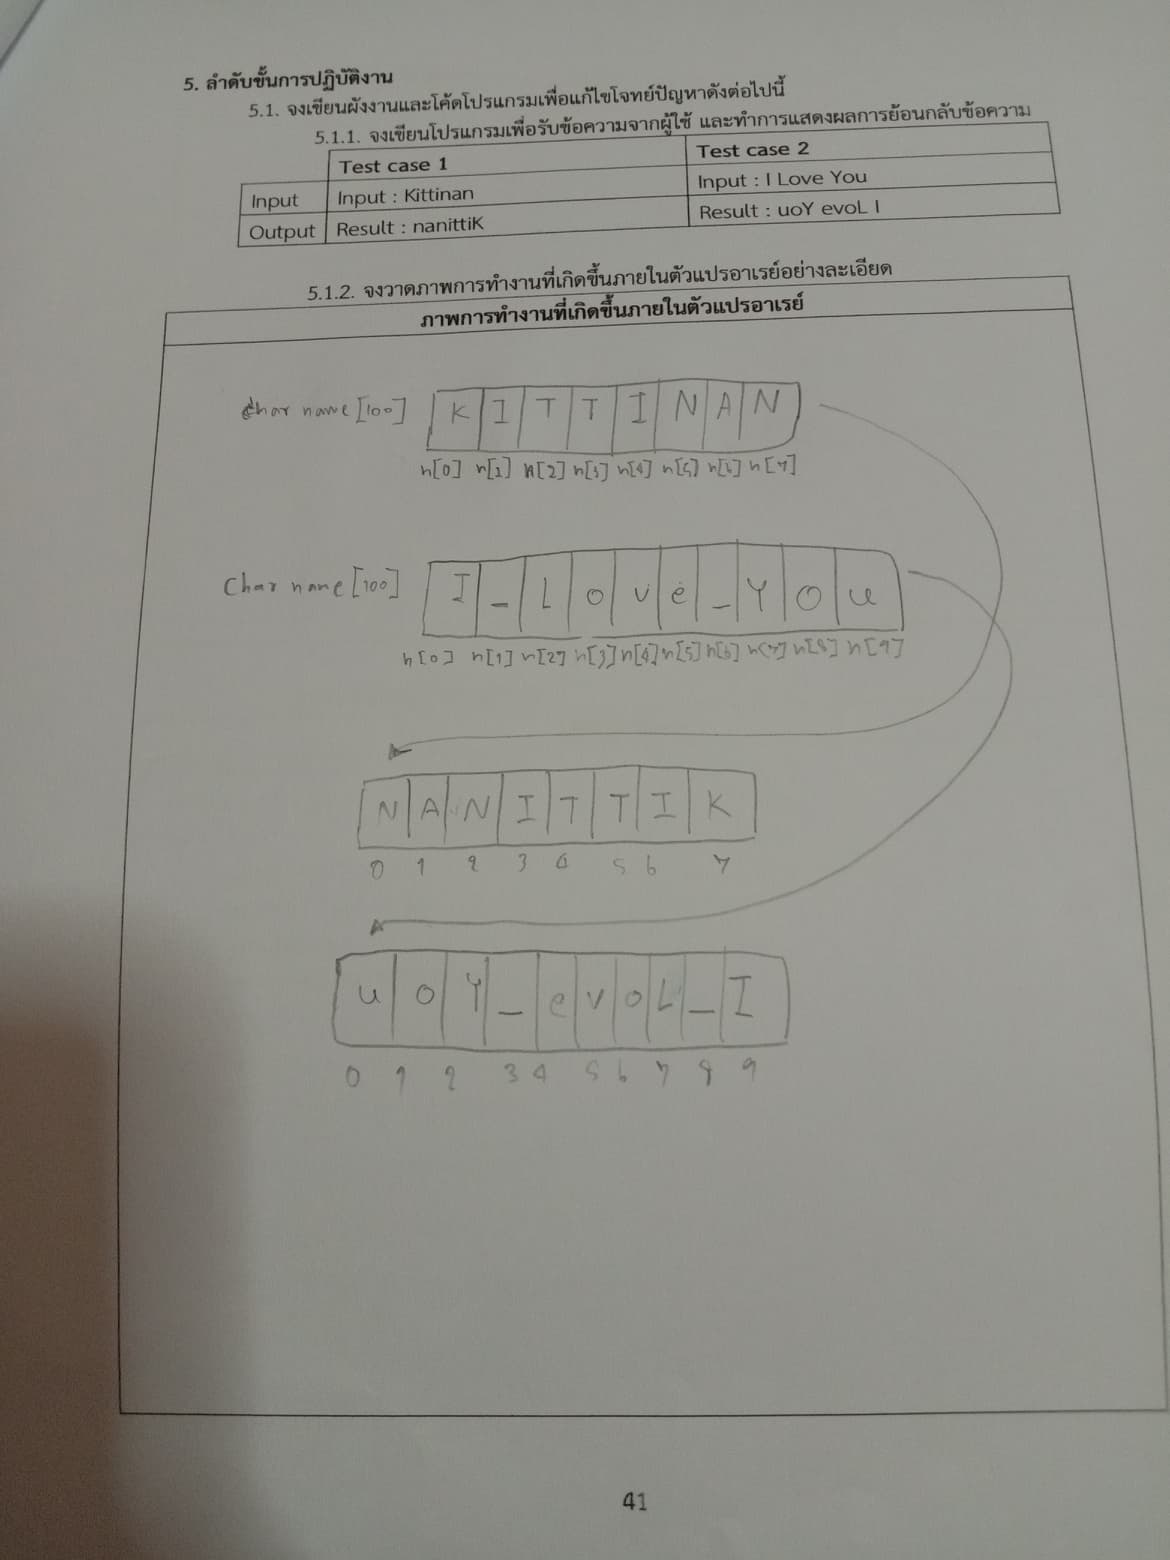 5. ลำดับขั้นการปฏิบัติงาน
5.1. จงเขียนผังงานและโค้ดโปรแกรมเพื่อแก้ไขโจทย์ปัญหาดังต่อไปนี้
5.1.1. จงเขียนโปรแกรมเพื่อรับข้อความจากผู้ใช้ และทำการแสดงผลการย้อนกลับข้อความ
Test case 1 Test case 2
Input Input : Kittinan Input : I Love You
Output Result : nanittiK Result : uoY evoL I
5.1.2. จงวาดภาพการทำงานที่เกิดขึ้นภายในตัวแปรอาเรย์อย่างละเอียด
ภาพการทำงานที่เกิดขึ้นภายในตัวแปรอาเรย์
char name [100] K I T T I N A N
n[0] n[1] n[2] n[3] n[4] n[5] n[6] n[7]
Char name [100] I _ L o v e _ Y o u
n[0] n[1] n[2] n[3] n[4] n[5] n[6] n[7] n[8] n[9]
N A N I T T I K
0 1 2 3 4 5 6 7
u o Y _ e v o L _ I
0 1 2 3 4 5 6 7 8 9
41